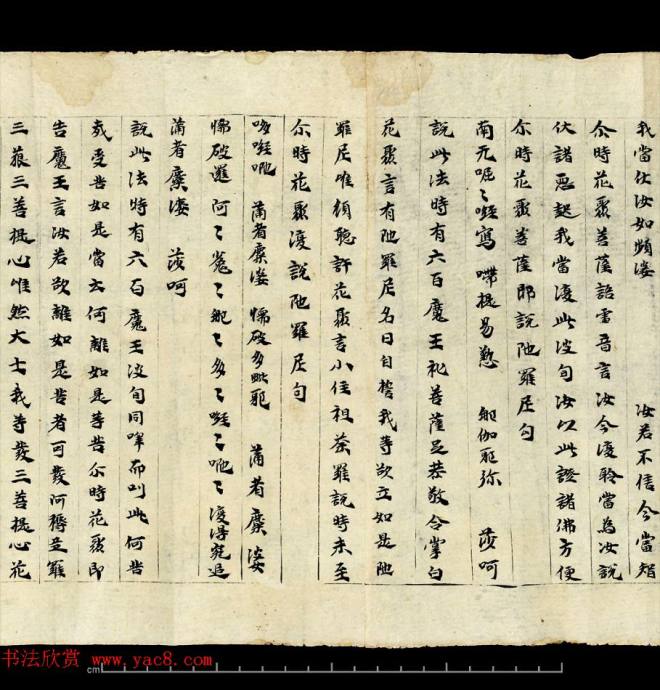 我當伏汝如頻婆 汝若不信今當
尒時花聚菩薩語雷音言汝今復聆當為汝說
伏諸惡趣我當復此波旬汝以此證諸佛方便
尒時花聚菩薩即說陁羅尼句
南无呢〻㘑寫 啼提易懃 郍伽耶弥 莎呵
說此法時有六百魔王礼菩薩足恭敬合掌白
花聚言有陁羅尼名曰自誓我等欲立如是陁
羅尼唯願聽許花聚言小住祖荼羅說時未至
尒時花聚復說陁羅尼句
哆㘑吔 蒲者糜婆 懦破多毗耶 蒲者糜婆
懦破邏 阿〻㝹〻郍〻多〻㘑〻吔〻復得究追
蒲者糜婆 莎呵
說此法時有六百魔王波旬同而叫此何苦
哉受苦如是當云何離如是等苦尒時花聚即
告魔王言汝若欲離如是苦者可發阿耨三羅
三藐三菩提心唯然大士我等發三菩提心花
书法欣赏 www.yac8.com
cm